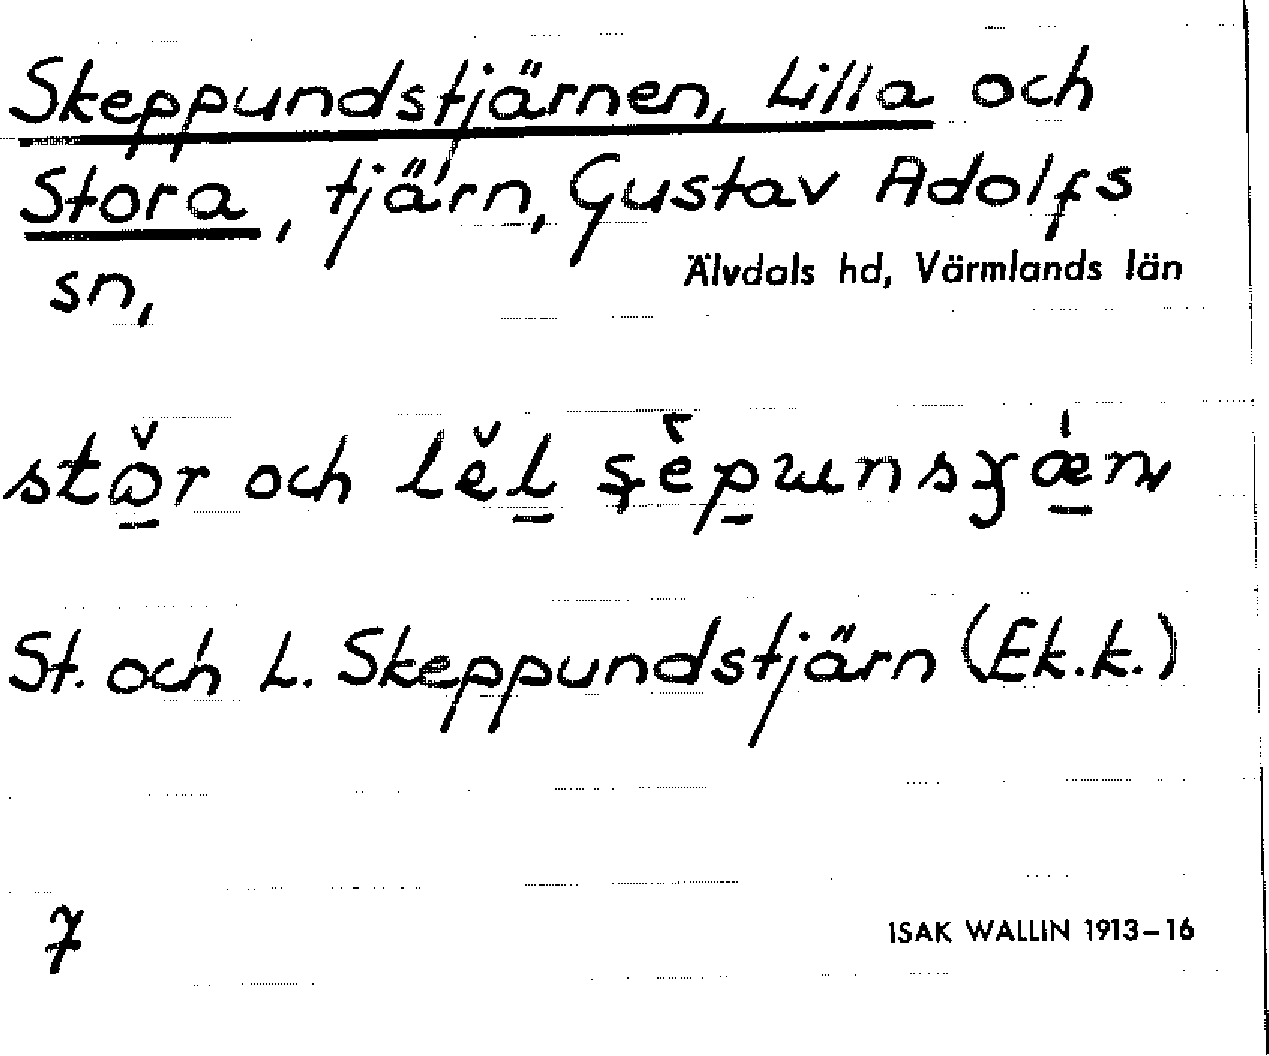 Skeppundstjärnen, Lilla och
Stora, tjärn, Gustav Adolfs
sn,
Älvdals hd, Värmlands län
och
St. och L. Skeppundstjärn (Ek.k.)
7
ISAK WALLIN 1913–16